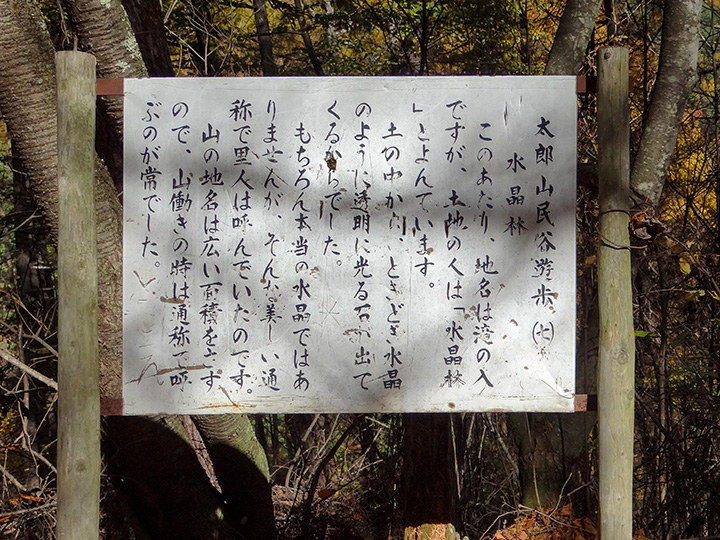 太郎山民俗遊歩(七)
水晶林
このあたり、地名は滝の入
ですが、土地の人は「水晶林
」とよんでいます。
土の中から、ときどき水晶
のように透明に光る石が出て
くるからでした。
もちろん本当の水晶ではあ
りませんが、そんな美しい通
称で里人は呼んでいたのです。
山の地名は広い面積を占す
ので、山働きの時は通称で呼
ぶのが常でした。